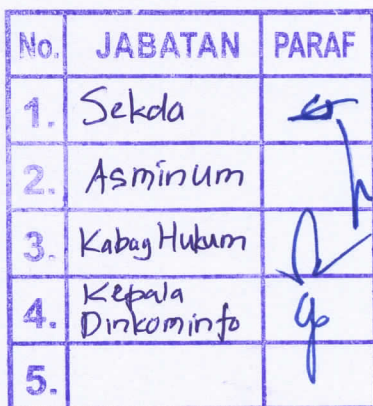 No. JABATAN PARAF
1. Sekda
2. Asminum
3. Kabag Hukum
4. Kepala
Dinkominfo
5.